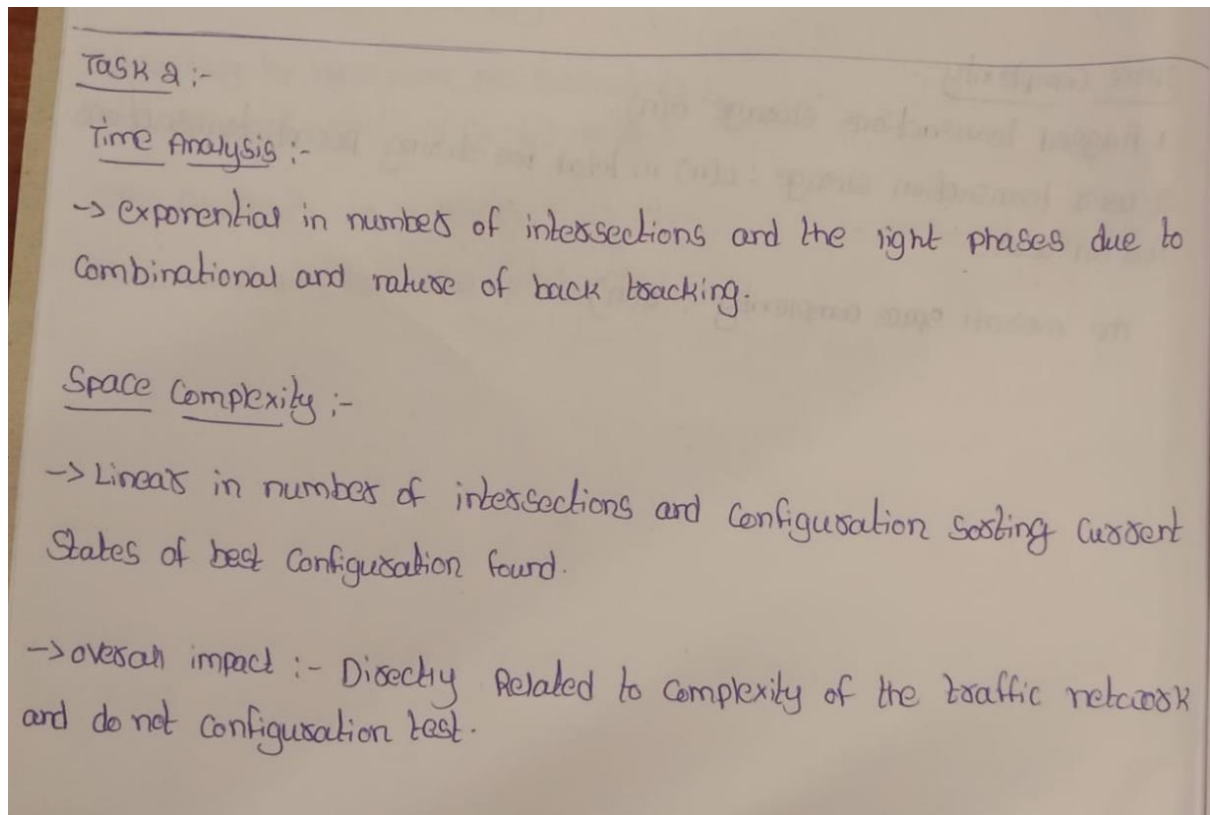 Task 2 :-
Time Analysis :-
-> exponential in number of intersections and the right phases due to
Combinational and nature of back tracking.
Space Complexity :-
-> Linear in number of intersections and Configuration Sorting Current
States of best Configuration found.
-> overall impact :- Directly Related to Complexity of the traffic network
and do not Configuration test.